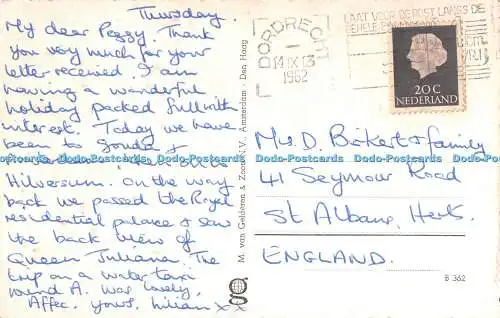 Thursday.
My dear Peggy. Thank
you very much for your
letter received. I am
having a wonderful
holiday packed full with
interest. Today we have
been to Gouda &
Hilversum. On the way
back we passed the Royal
residential palace & saw
the back view of
Queen Juliana. The
trip on a water taxi
round A. was lovely.
Affec. yours, Lilian x x
M. van Gelderen & Zoon N.V. Amsterdam - Den Haag
go
DORDRECHT
14 IX 13
1962
LAAT VOOR DE POST LANGS DE
20 C
NEDERLAND
Mrs. D. Birkert & family
41 Seymour Road
St Albans, Herts.
ENGLAND.
B 362
Dodo-Postcards Dodo-Postcards Dodo-Postcards Dodo-Postcards Dodo-Postcards